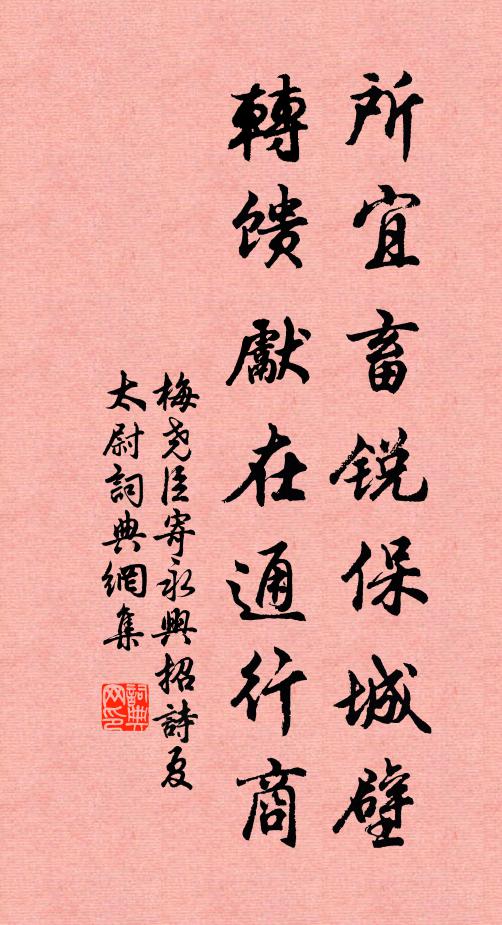 所宜畜锐保城壁
轉馈獻在通行商
梅尧臣寄永興招詩夏
太尉詞典網集
詞典
网印